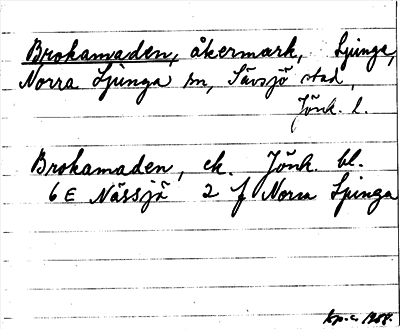 Brokamaden, åkermark, Ljunga,
Norra Ljunga sn, Sävsjö stad,
Jönk. l.
Brokamaden, ek. Jönk. bl.
6 E Nässjö 2 f Norra Ljunga
kp.c. 1958.